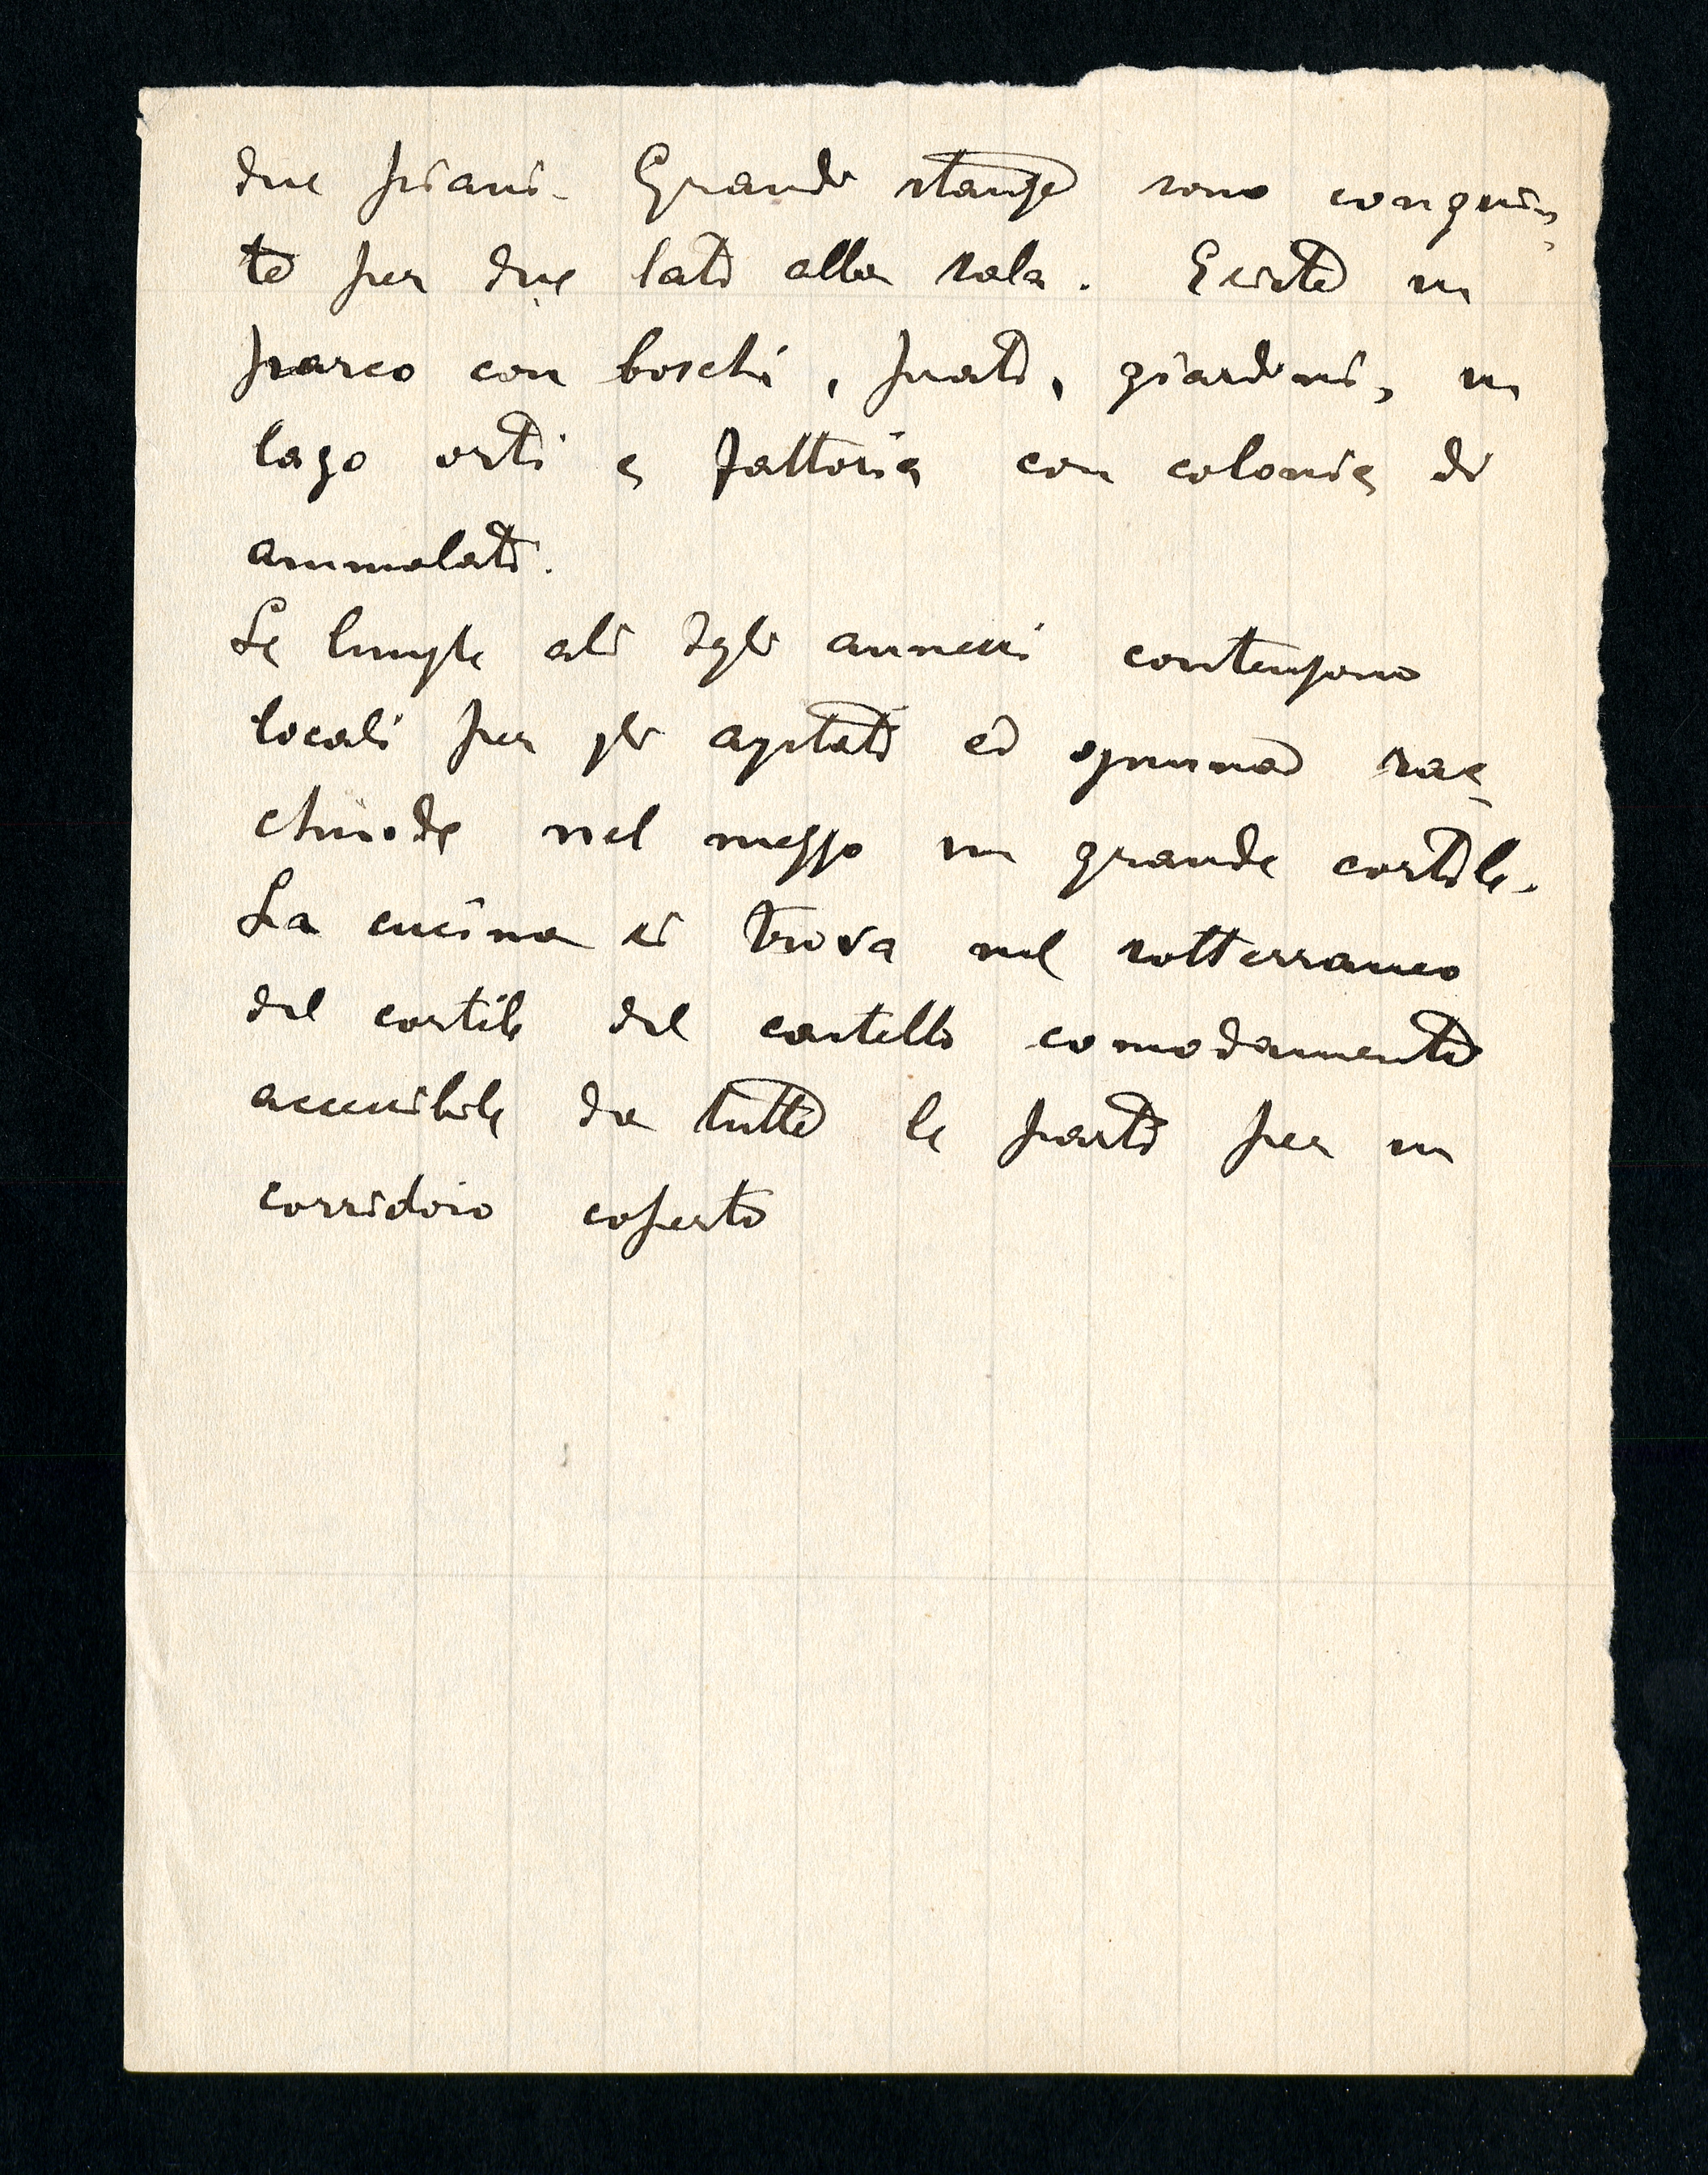 due piani. Grandi stanze sono congiun-
te per due lati alla sala. Esiste un
parco con boschi, prati, giardini, un
lago orti e fattoria con colonia di
ammalati.
Le lunghe ali degli annessi contengono
locali per gli agitati ed ognuna rac-
chiude nel mezzo un grande cortile.
La cucina si trova nel sotterraneo
del cortile del castello comodamente
accessibile da tutte le parti per un
corridoio coperto